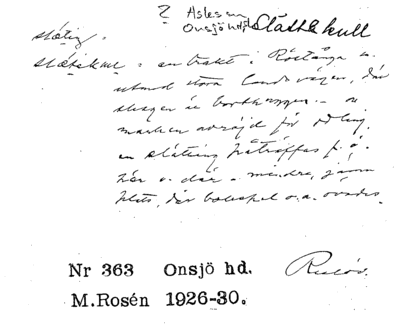 ? Aslesun
Onsjö hd Slättskull
slätig.
slätskul = en trakt i Röstånga s.
utmed stora landsvägen, där
skogen är borthuggen - o.
marken avröjd för odling.
en slätting påträffas p. å.
här o. där - mindre, jämn
plats, där bollspel o.a. övades.
Nr 363 Onsjö hd.
M.Rosén 1926-30.